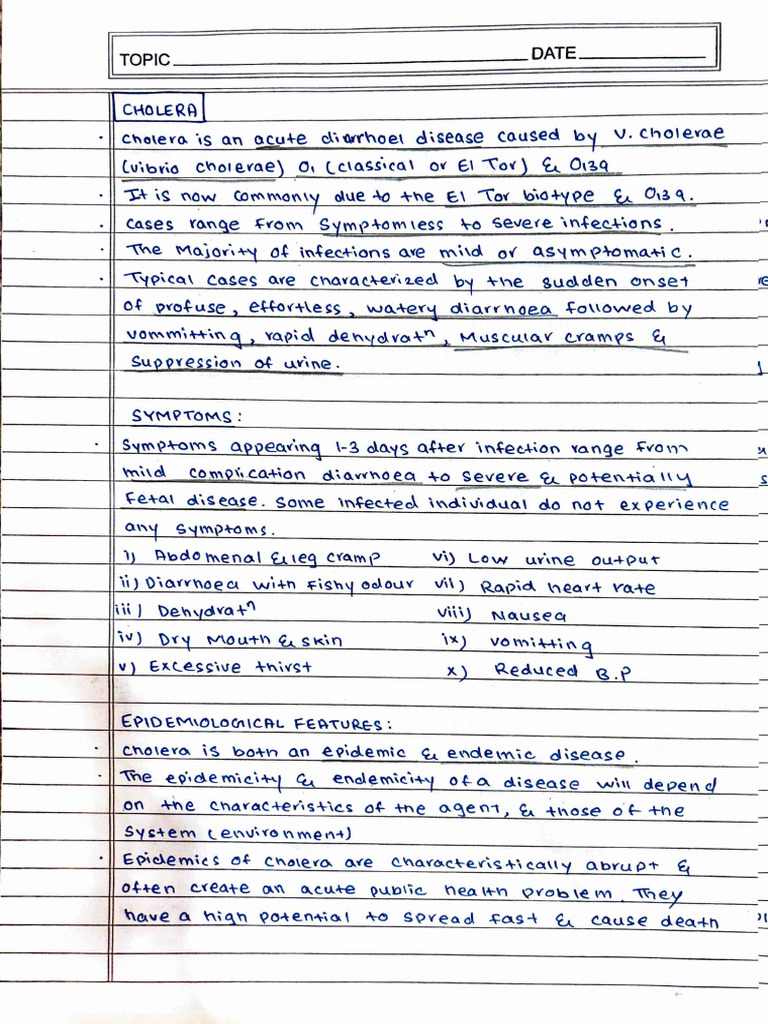 TOPIC DATE
CHOLERA
· Cholera is an acute diarrhoel disease caused by V. cholerae
(vibrio cholerae) O1 (classical or El Tor) & O139
· It is now commonly due to the El Tor biotype & O139.
· Cases range from symptomless to severe infections.
· The Majority of infections are mild or asymptomatic.
· Typical cases are characterized by the sudden onset
of profuse, effortless, watery diarrhoea followed by
vommitting, rapid dehydratⁿ, Muscular cramps &
suppression of urine.
SYMPTOMS:
· Symptoms appearing 1-3 days after infection range from
mild complication diarrhoea to severe & potentially
Fetal disease. Some infected individual do not experience
any symptoms.
i) Abdomenal & leg cramp vi) Low urine output
ii) Diarrhoea with fishy odour vii) Rapid heart rate
iii) Dehydratⁿ viii) Nausea
iv) Dry Mouth & skin ix) vomitting
v) Excessive thirst x) Reduced B.P
EPIDEMIOLOGICAL FEATURES:
· Cholera is both an epidemic & endemic disease.
· The epidemicity & endemicity of a disease will depend
on the characteristics of the agent, & those of the
System (environment)
· Epidemics of cholera are characteristically abrupt &
often create an acute public health problem. They
have a high potential to spread fast & cause death